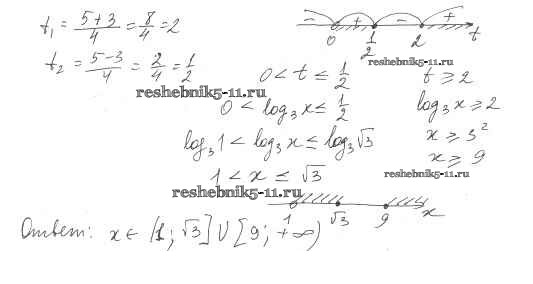 t₁ = (5+3)/4 = 8/4 = 2
t₂ = (5-3)/4 = 2/4 = 1/2
− + − +
0 1/2 2 t
reshebnik5-11.ru
reshebnik5-11.ru
0 < t ≤ 1/2
0 < log₃x ≤ 1/2
log₃1 < log₃x ≤ log₃√3
1 < x ≤ √3
t ≥ 2
log₃x ≥ 2
x ≥ 3²
x ≥ 9
reshebnik5-11.ru
reshebnik5-11.ru
1 √3 9 x
Ответ: x ∈ (1; √3] ∪ [9; +∞)